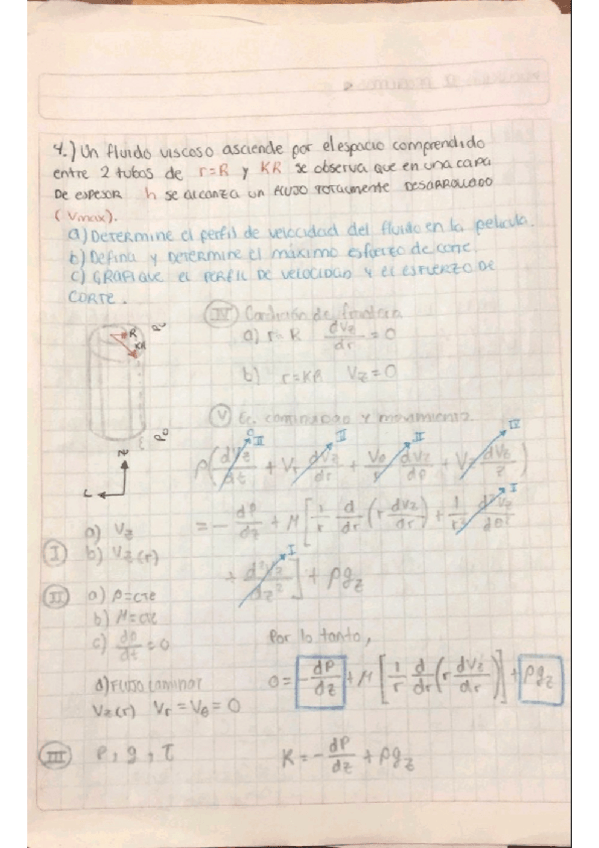 4.) Un fluido viscoso asciende por el espacio comprendido
entre 2 tubos de r=R y KR se observa que en una capa
DE espesor h se alcanza un FLUJO TOTALMENTE DESARROLLADO
(Vmax).
a) DETERMINE el perfil de velocidad del fluido en la película.
b) Defina y Determine el máximo esfuerzo de corte
c) GRAFIQUE EL PERFIL DE VELOCIDAD Y EL ESFUERZO DE
CORTE.
IV Condición de frontera
a) r=R dVz/dr = 0
b) r=KR Vz=0
R
KR
P0
z
r
V Ec. continuidad y movimiento.
ρ(dVz/dt + Vr dVz/dr + Vθ/r dVz/dθ + Vz dVz/z)
= - dP/dz + M[1/r d/dr(r dVz/dr) + 1/r² d²Vz/dθ²
+ d²Vz/dz²] + ρgz
I a) Vz
b) Vz(r)
II a) ρ=cte
b) M=cte
c) dρ/dt=0
d) Flujo Laminar
Vz(r) Vr=Vθ=0
III P, g, τ
Por lo tanto,
0= -dP/dz + M[1/r d/dr(r dVz/dr)] + ρgz
K = -dP/dz + ρgz